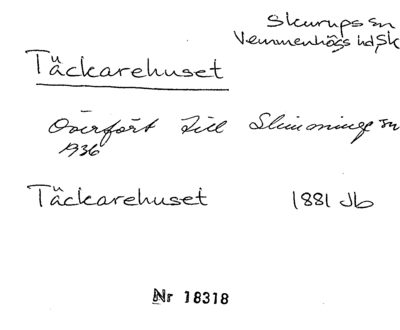 Skurups sn
Vemmenhögs hd, Sk
Täckarehuset
Överfört till Slimminge sn
1936
Täckarehuset 1881 Jb
Nr 18318